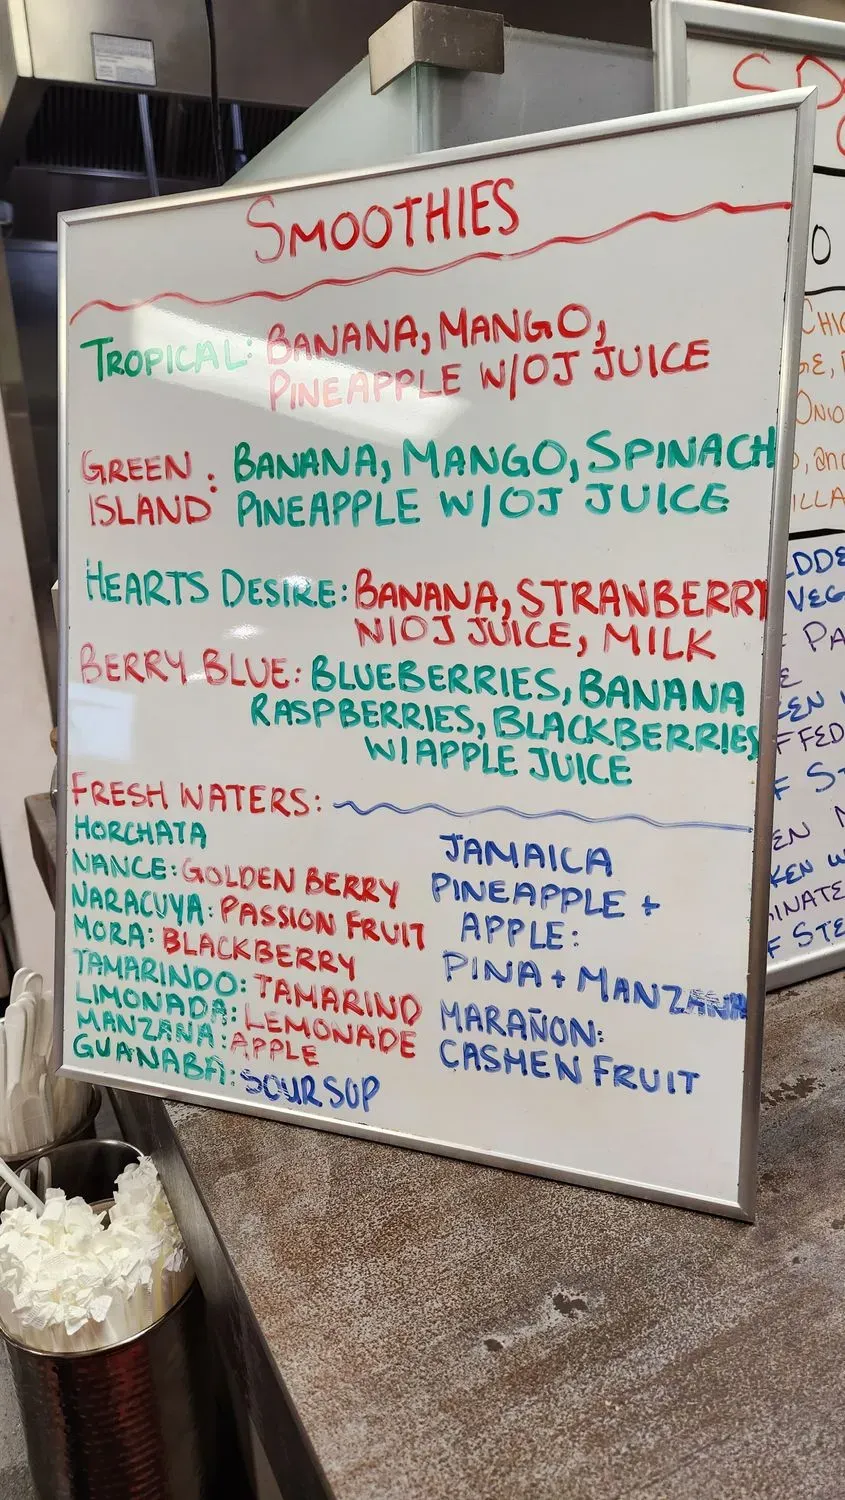 SMOOTHIES
TROPICAL: BANANA, MANGO,
PINEAPPLE W/OJ JUICE
GREEN : BANANA, MANGO, SPINACH
ISLAND PINEAPPLE W/OJ JUICE
HEARTS DESIRE: BANANA, STRANBERRY
W/OJ JUICE, MILK
BERRY BLUE: BLUEBERRIES, BANANA
RASPBERRIES, BLACKBERRIES
W/APPLE JUICE
FRESH WATERS:
HORCHATA
NANCE: GOLDEN BERRY
NARACUYA: PASSION FRUIT
MORA: BLACKBERRY
TAMARINDO: TAMARIND
LIMONADA: LEMONADE
MANZANA: APPLE
GUANABA: SOURSOP
JAMAICA
PINEAPPLE +
APPLE:
PINA + MANZANA
MARAÑON:
CASHEN FRUIT